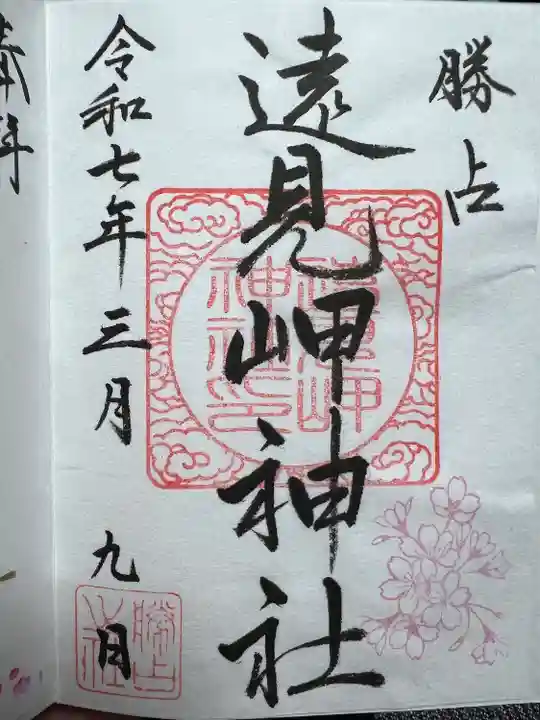 勝占
遠見岬神社
令和七年三月九日
遠見岬
神社印
奉拝